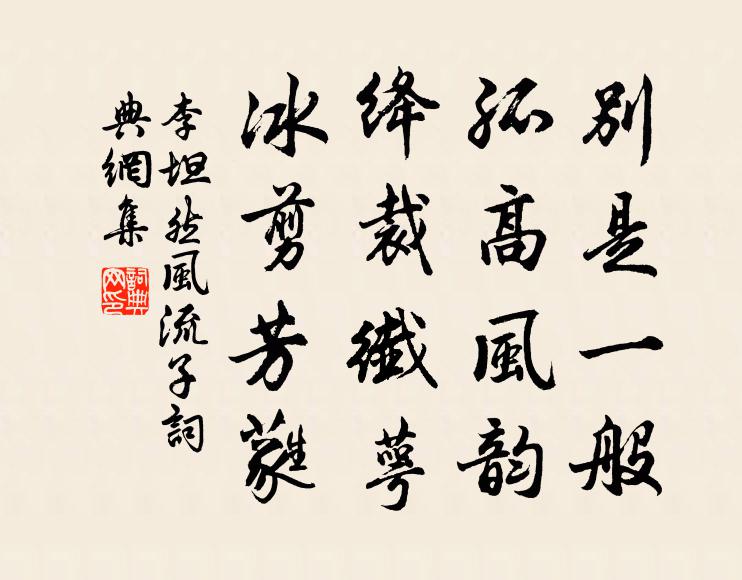 別是一般
孤高風韵
絳裁纖萼
冰剪芳蕤
李坦然風流子詞
典網集
詞典網印